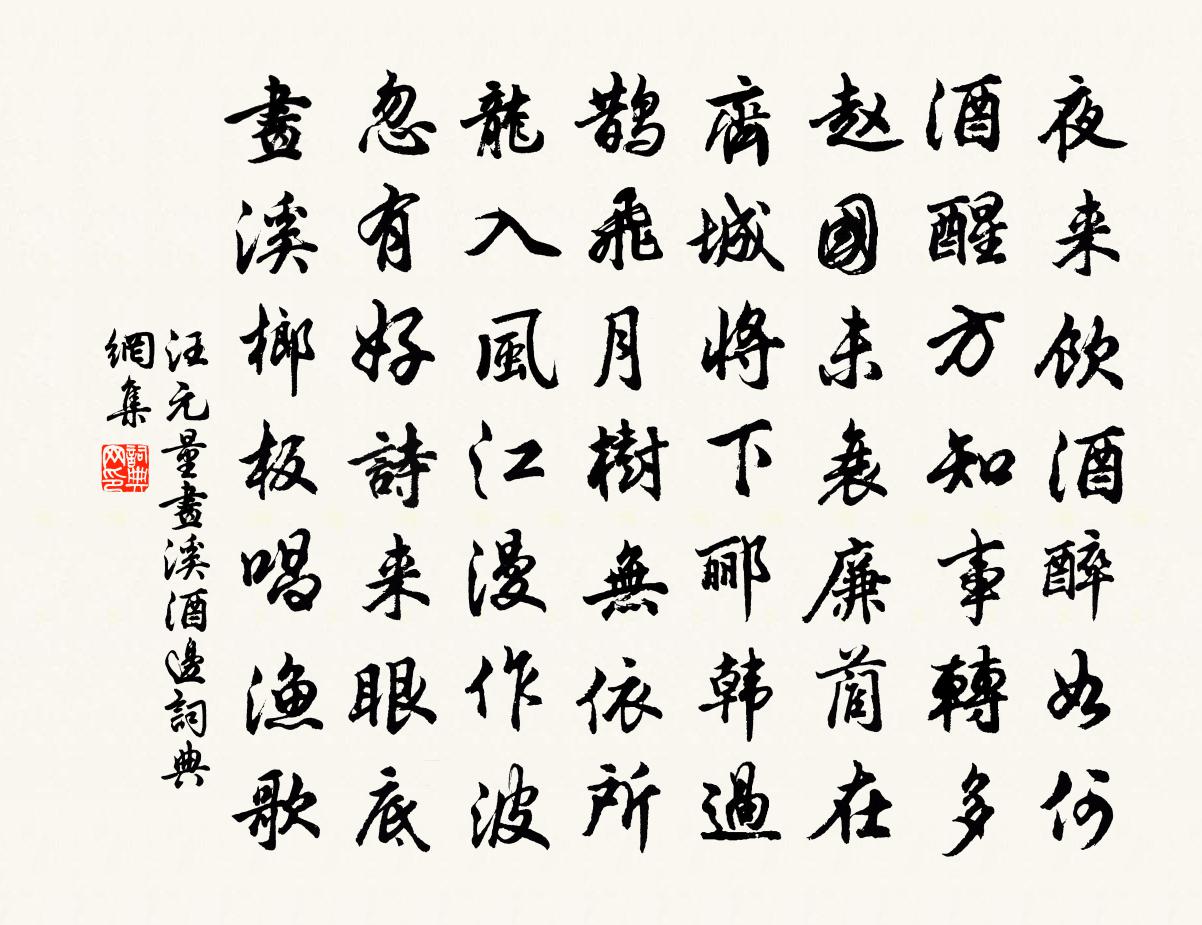 夜来飲酒醉如何
酒醒方知事轉多
赵國未衰廉藺在
齊城將下郦韩過
鵲飛月樹無依所
龍入風江漫作波
忽有好詩来眼底
畫溪榔板喝漁歌
汪元量畫溪酒邊詞典
網集
詞典
网印